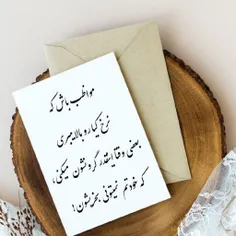 مواظب باش که
نرخ کیا رو بالا میبری
بعضی وقتا اینقدر گرونشون میکنی،
که خودتم نمیتونی بخریشون!